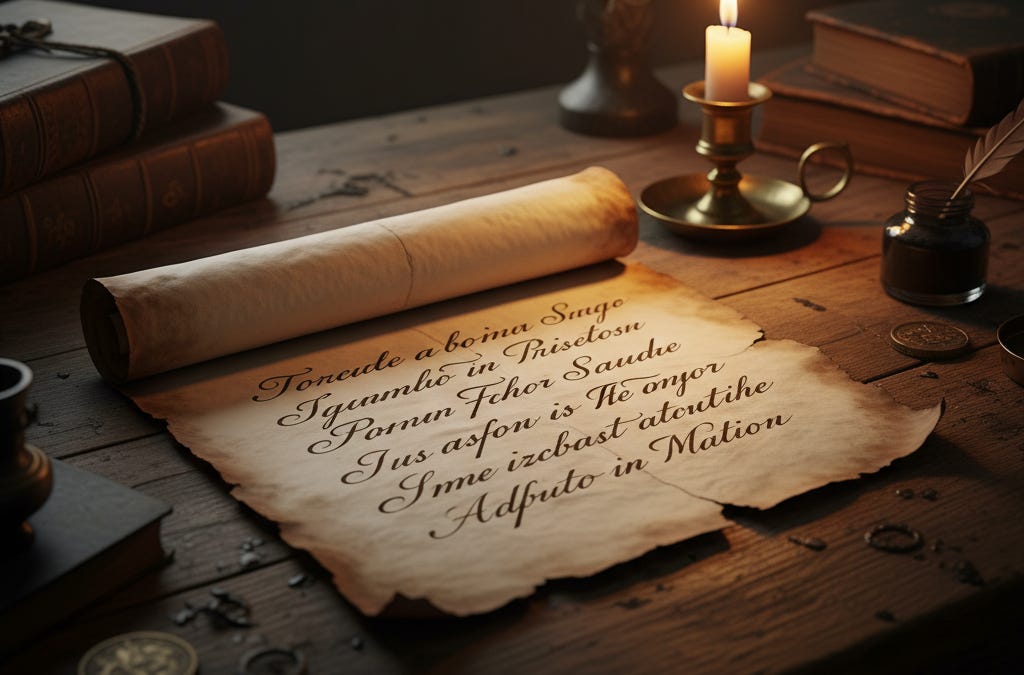 Torcude a boina Sruge
Jgrumbio in Prisetosn
Pomun Fchor Saudie
Jus asfon is Tle onyor
Smne izcbast atoutihe
Adfputo in Mation